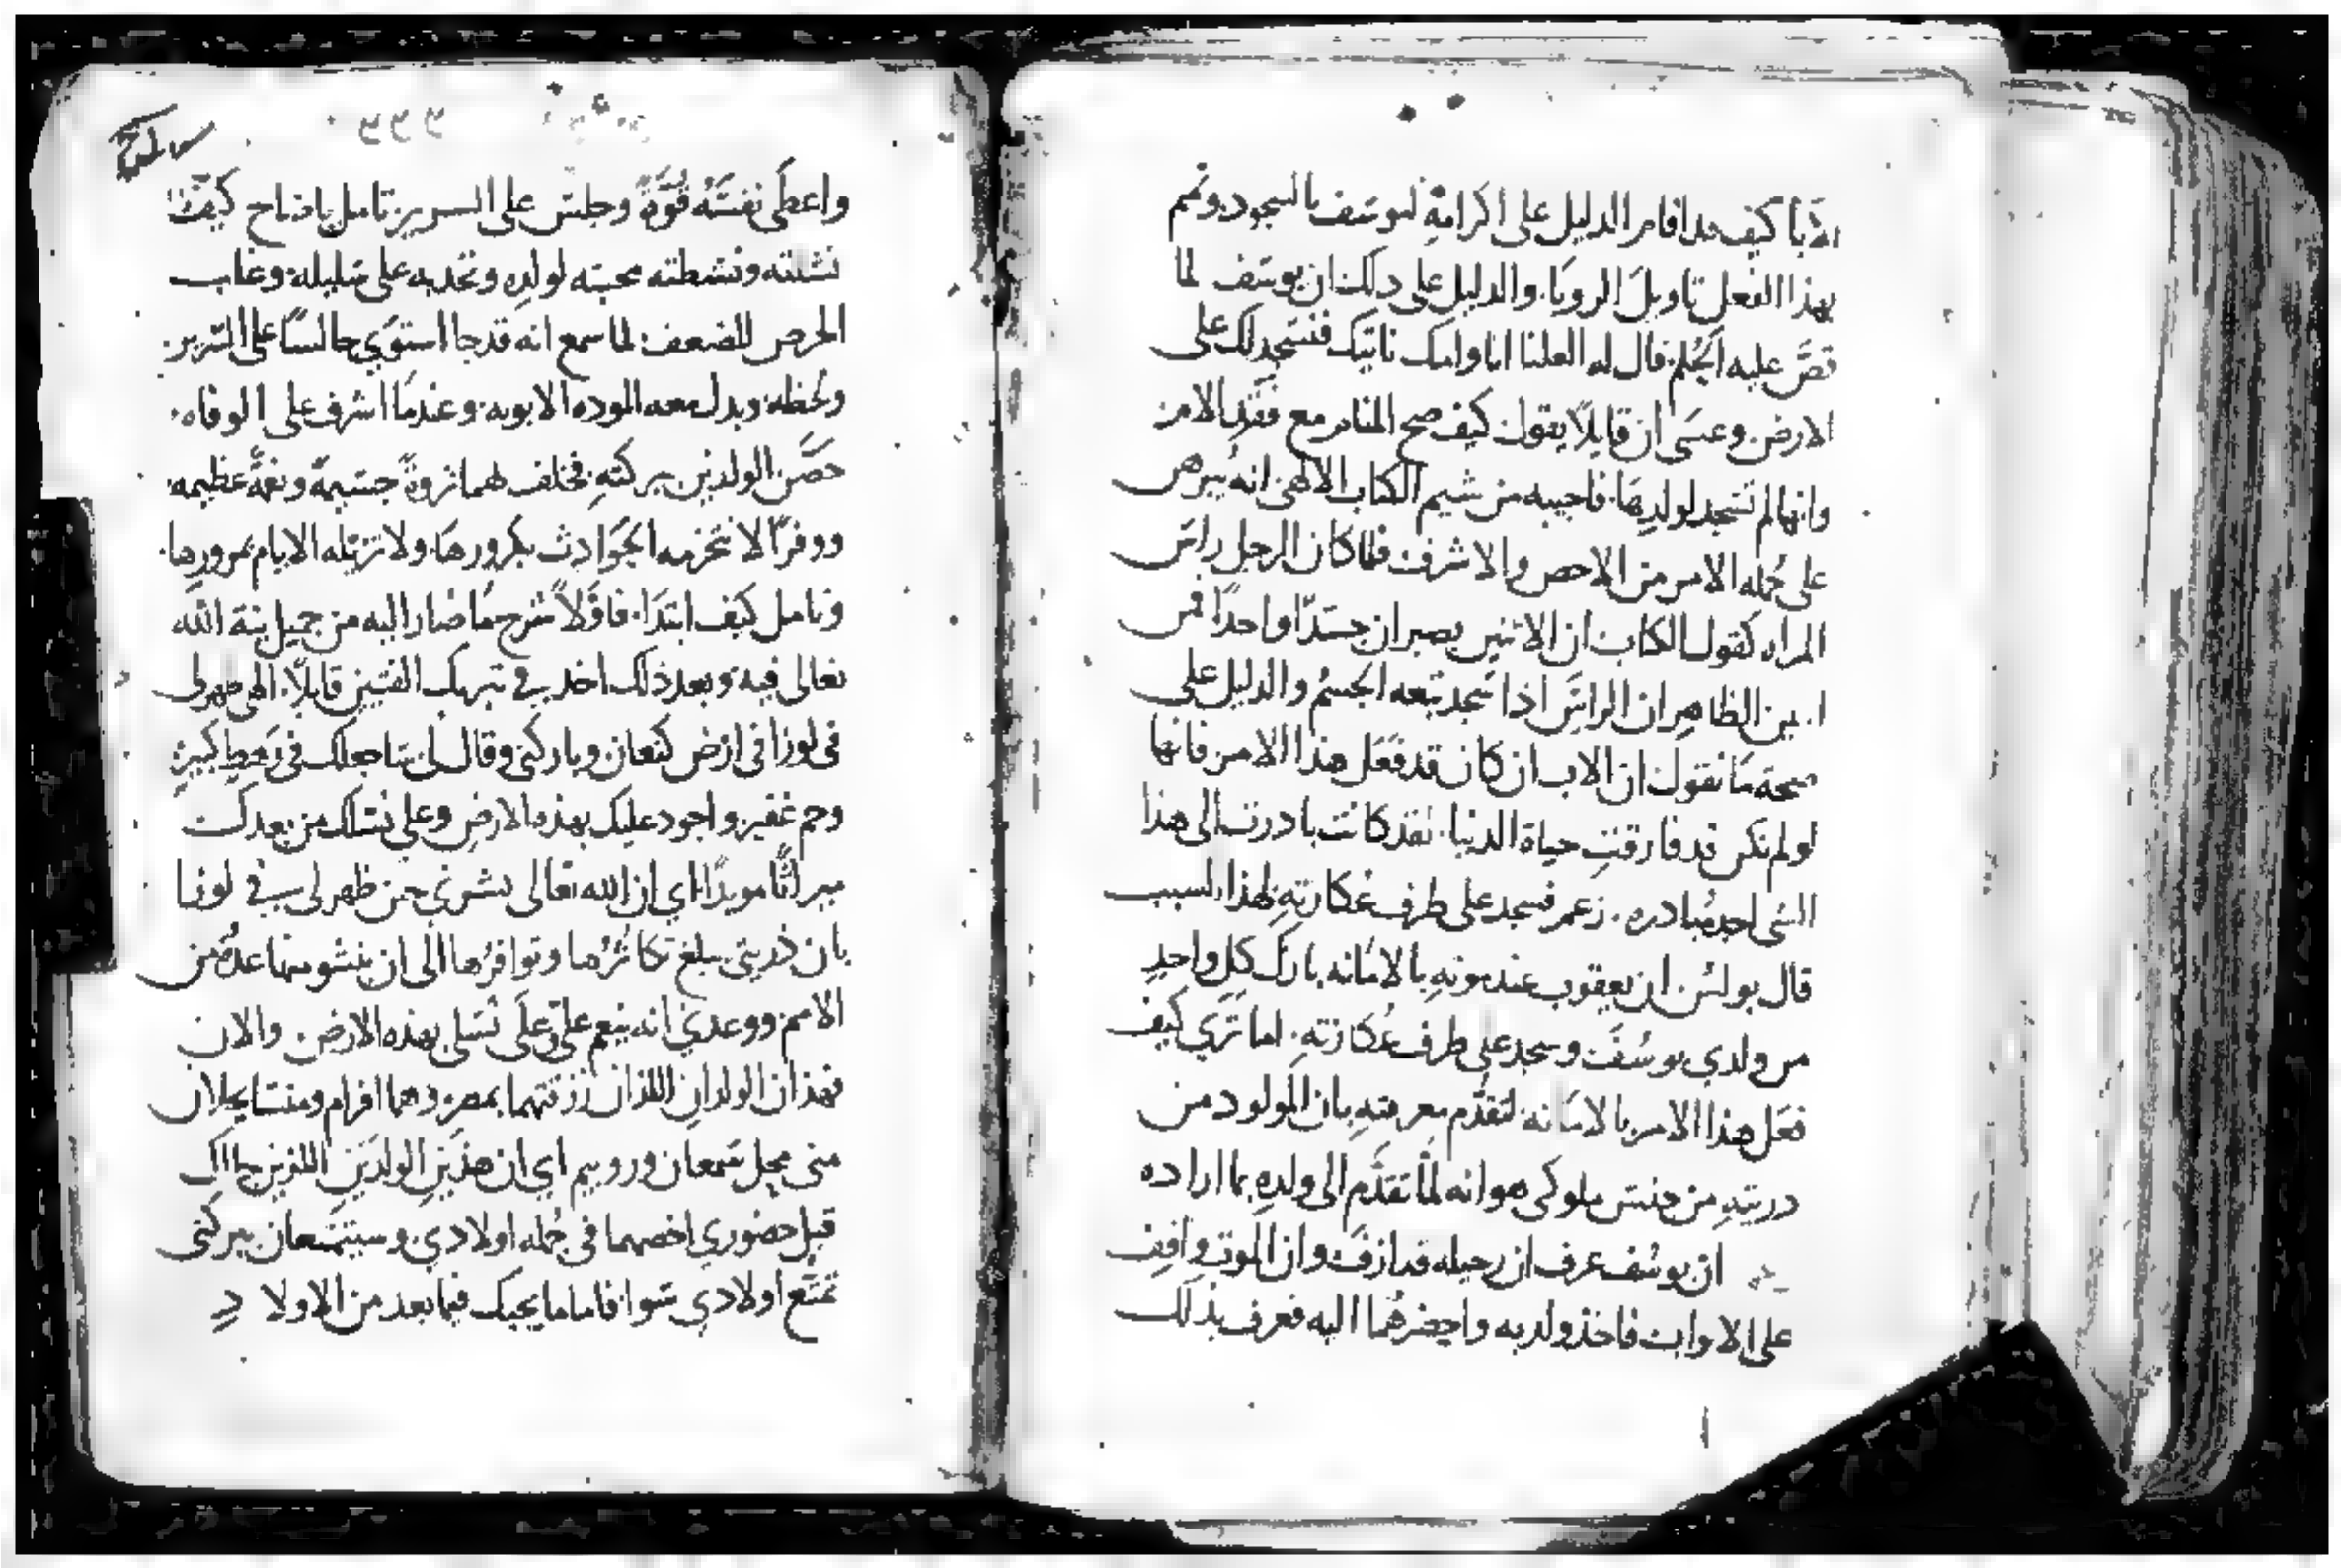 كيف هدا اقام الدليل على اكرامهِ ليوسف بالسجود وتمم
بهذا الفعل تاويل الرويا. والدليل على دلك ان يوسف لما
قصَّ عليه الحُلم قال له العلنا انا وامك ناتيك فنسجد لك على
الارض. وعسَى ان قايلاً يقول كيف صح المنام مع فقد الامر
وانها لم تسجد لولدِهَا. فاجيبه من شيم الكتاب الالاهى انه يبرهن
على جُمله الامر من الاخص والاشرف فلما كان الرجل راس
المراه كقول الكتاب ان الاثنين يصيران جسَدًا واحدًا فمن
الظاهر ان الراسَ اذا سَجد تبعه الجسمُ والدليل على
صحة مَا نقول ان الاب ان كان قد فعَل هذا الامر فانها
لو لم تكن قد فارقت حياة الدنيا. لقد كانت بادرت الى هذا
الشى اجد مُبادره. زعم فسجد على طرف عُكازتهِ لهذا السبب
قال بولسُ ان يعقوب عند موتهِ بالامانه بارَك كل واحدٍ
من ولدي يوسُف وسجد على طرف عُكازتهِ. اما ترَي كيف
فعَل هذا الامر بالامَانه لتقدُّم معرفتهِ بان المولود من
دريتهِ من جنس ملوكى هو انه لما تقدَّم الى ولدهِ بما اراده
ان يوسُف عرف ان رحيله قد ازفَ وان الموت واقف
على الابواب فاخذ ولديه واحضرهُما اليه فعرف بذلك
واعطَى نفسَهُ قُوَّةً وجلس على السرير تامل ياصاح كيف
نشلته ونشطته محبته لولدهِ وتحديه على سليله وغاب
الحرص للضعف: لما سمع انه قد جا استَوَي جالسًا على السَرير.
ولحظه وبدل معه الموده الابويه. وعندمَا اشرف على الوفاه.
حصَّن الولدين ببركتهِ فخلف لهما ثروةً جسَيمةً ونعمةً عظيمه
ووفرًا لا تخرمه الحوَادث بكرورهَا. ولا تزيله الايام بمرورها.
وتامل كيف ابتدَا. فاوَّلاً شرح مَا صَار اليه من جميل نية الله
تعالى فيه وبعد ذلك اخد في تبريك الفتيين قايلاً. الهى ظهر لى
فى لوزا فى ارَض كنعَان وباركنى وقال لى ساجعلك فى رَهطٍ كبيرٍ
وجم غفير واجود عليك بهذه الارض وعلى نسلك من بعدك
ميراثًا مويدًا. اي ان الله تعَالى بشرني حين ظهر لي في لوزا
بان ذريتى يبلغ تكاثُرُها وتوافرُها الى ان ينشو منها عدةٌ من
الامم. ووعدني انه ينعم علىّ وعلَى نسَلى بهذه الارض والان
فهذان الولدان اللذان رزقتهما بمصر وهما افرام ومنسا يحلان
منى محل سَمعان وروبيم اي ان هذَينِ الولدَينِ اللذين جااك
قبل حضوري اخصهما فى جُمله اولادي. وسيتمتعان ببركتى
تمتّع اولادي سَوا. فاما ما يحيك فيما بعد من الاولا دِ